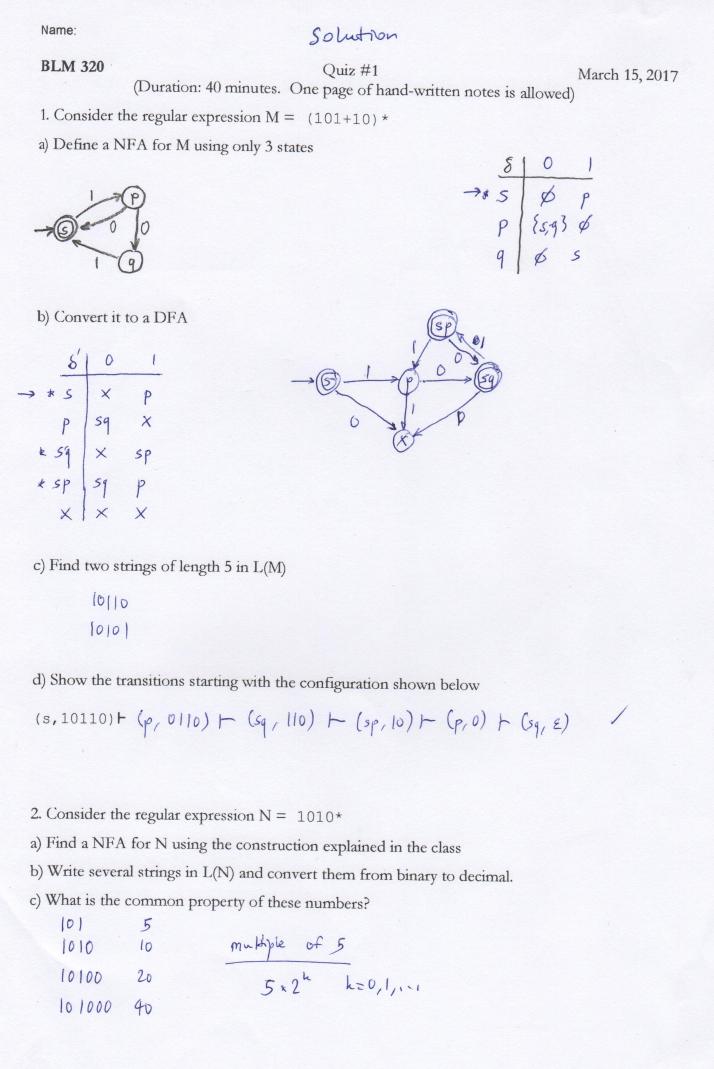 Name:
Solution
BLM 320
Quiz #1
March 15, 2017
(Duration: 40 minutes. One page of hand-written notes is allowed)
1. Consider the regular expression M = (101+10)*
a) Define a NFA for M using only 3 states
δ 0 1
→* s ϕ p
p {s,q} ϕ
q ϕ s
1
p
s
0
0
1
q
b) Convert it to a DFA
δ' 0 1
→ * s x p
p sq x
* sq x sp
* sp sq p
x x x
sp
1
0
1
s
1
p
0
sq
0
1
0
x
c) Find two strings of length 5 in L(M)
10110
10101
d) Show the transitions starting with the configuration shown below
(s,10110)⊢ (p, 0110) ⊢ (sq, 110) ⊢ (sp, 10) ⊢ (p, 0) ⊢ (sq, ε) ✓
2. Consider the regular expression N = 1010*
a) Find a NFA for N using the construction explained in the class
b) Write several strings in L(N) and convert them from binary to decimal.
c) What is the common property of these numbers?
101 5
1010 10
10100 20
101000 40
multiple of 5
5 × 2ᵏ k=0,1,...